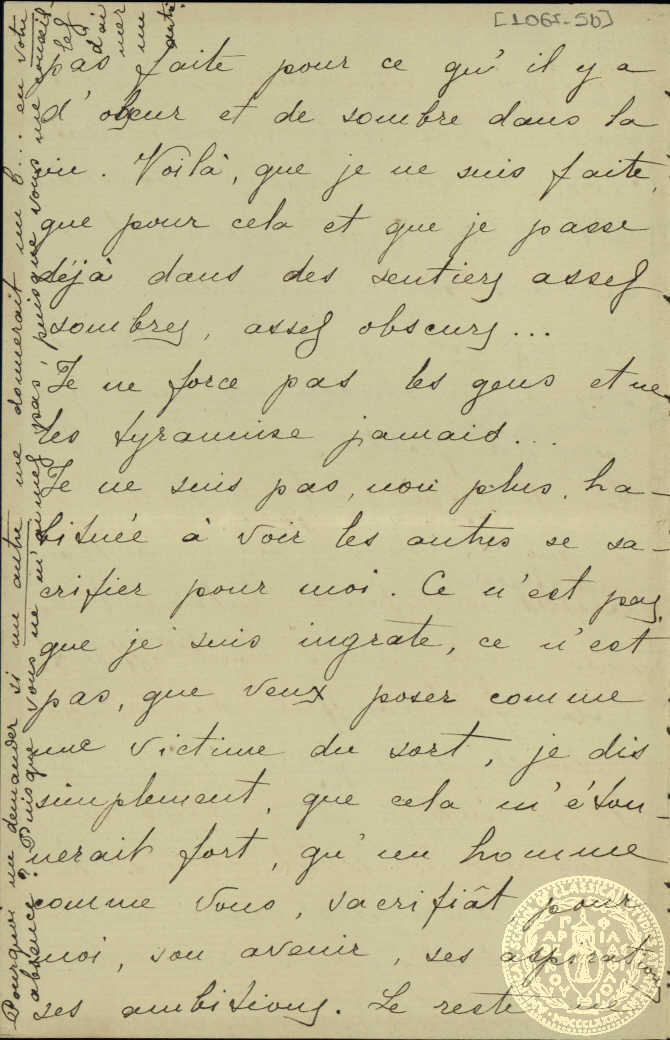 [1061-5b]
pas faite pour ce qu'il y a
d'obscur et de sombre dans la
vie. Voilà, que je ne suis faite,
que pour cela et que je passe
déjà dans des sentiers assez
sombres, assez obscurs...
Je ne force pas les gens et ne
les tyrannise jamais...
Je ne suis pas, non plus, ha-
bituée à voir les autres se sa-
crifier pour moi. Ce n'est pas,
que je suis ingrate, ce n'est
pas, que veux poser comme
une victime du sort, je dis
simplement, que cela m'éton-
nerait fort, qu'un homme
comme vous, sacrifiât pour
moi, son avenir, ses aspirations
ses ambitions. Le reste
Pourquoi me demander si un autre me donnerait un b... en votre
absence? Puisque vous ne m'aimez pas, puisque vous me conseil-
lez
d'ai
mer
un
autre